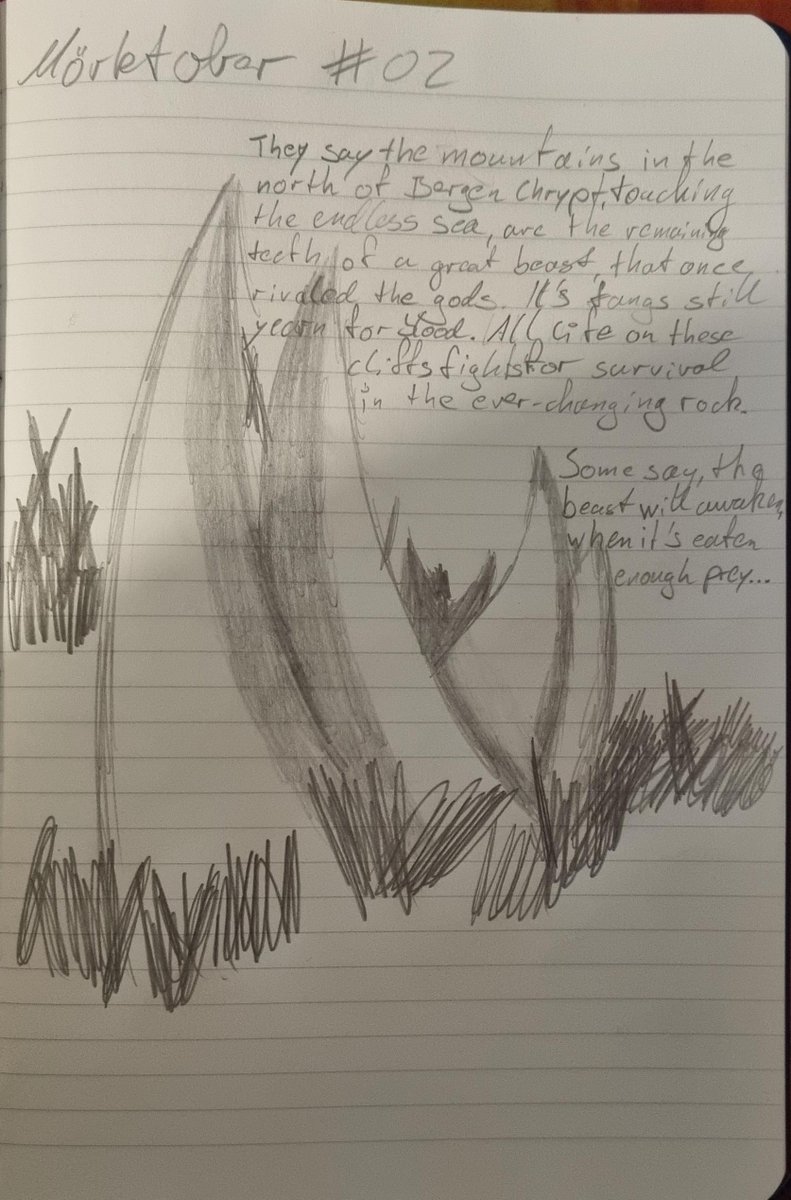 Mörktober #02
They say the mountains in the
north of Bergen Chrypt, touching
the endless sea, are the remaining
teeth of a great beast, that once
rivaled the gods. It's fangs still
yearn for blood. All life on these
cliffs fights for survival
in the ever-changing rock.
Some say, the
beast will awaken,
when it's eaten
enough prey...